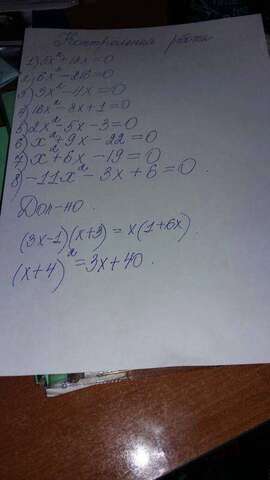 Контрольная работа
1) 5x²+18x=0
2) 6x²-216=0
3) 3x²-4x=0
4) 16x²-8x+1=0
5) 2x²-5x-3=0
6) x²+9x-22=0
7) x²+6x-19=0
8) -11x²-3x+6=0.
Доп-но.
(3x-1)(x+3)=x(1+6x).
(x+4)²=3x+40.